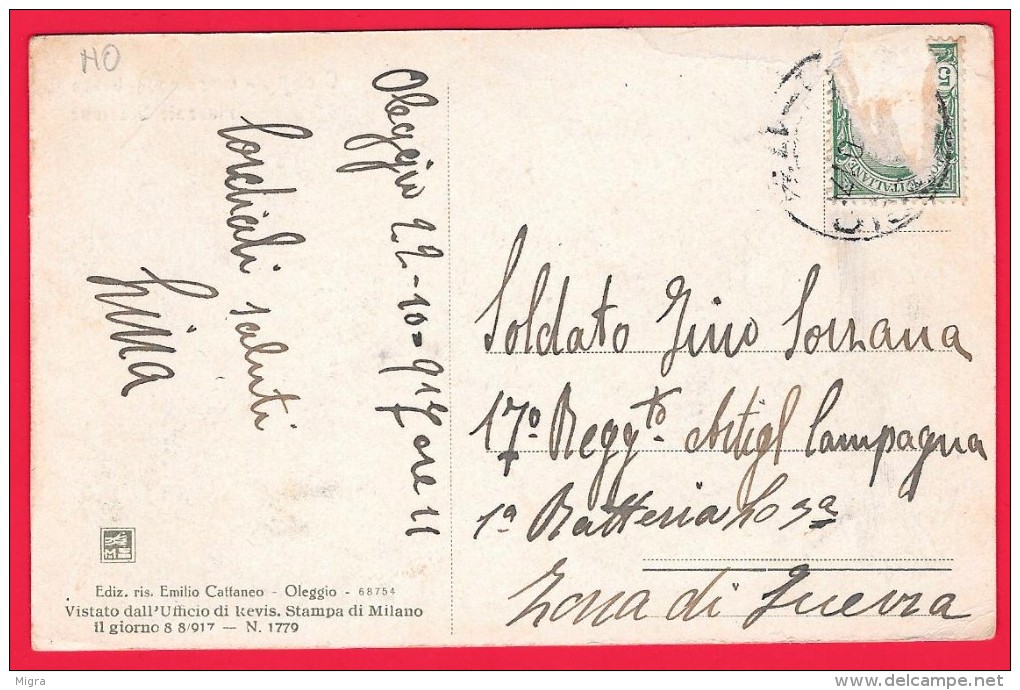 NO
Oleggio 22-10-917 ore 11
Cordiali saluti
Lina
5
POSTE ITALIANE
Soldato Gino Sorzana
17º Reggto Artigl Campagna
1ª Batteria
Zona di Guerra
Ediz. ris. Emilio Cattaneo - Oleggio - 68754
Vistato dall'Ufficio di Revis. Stampa di Milano
il giorno 8 8/917 — N. 1779
Migra
delcampe.net